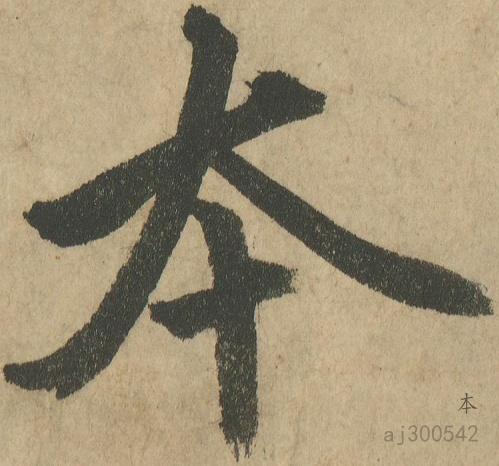 本
本
aj300542